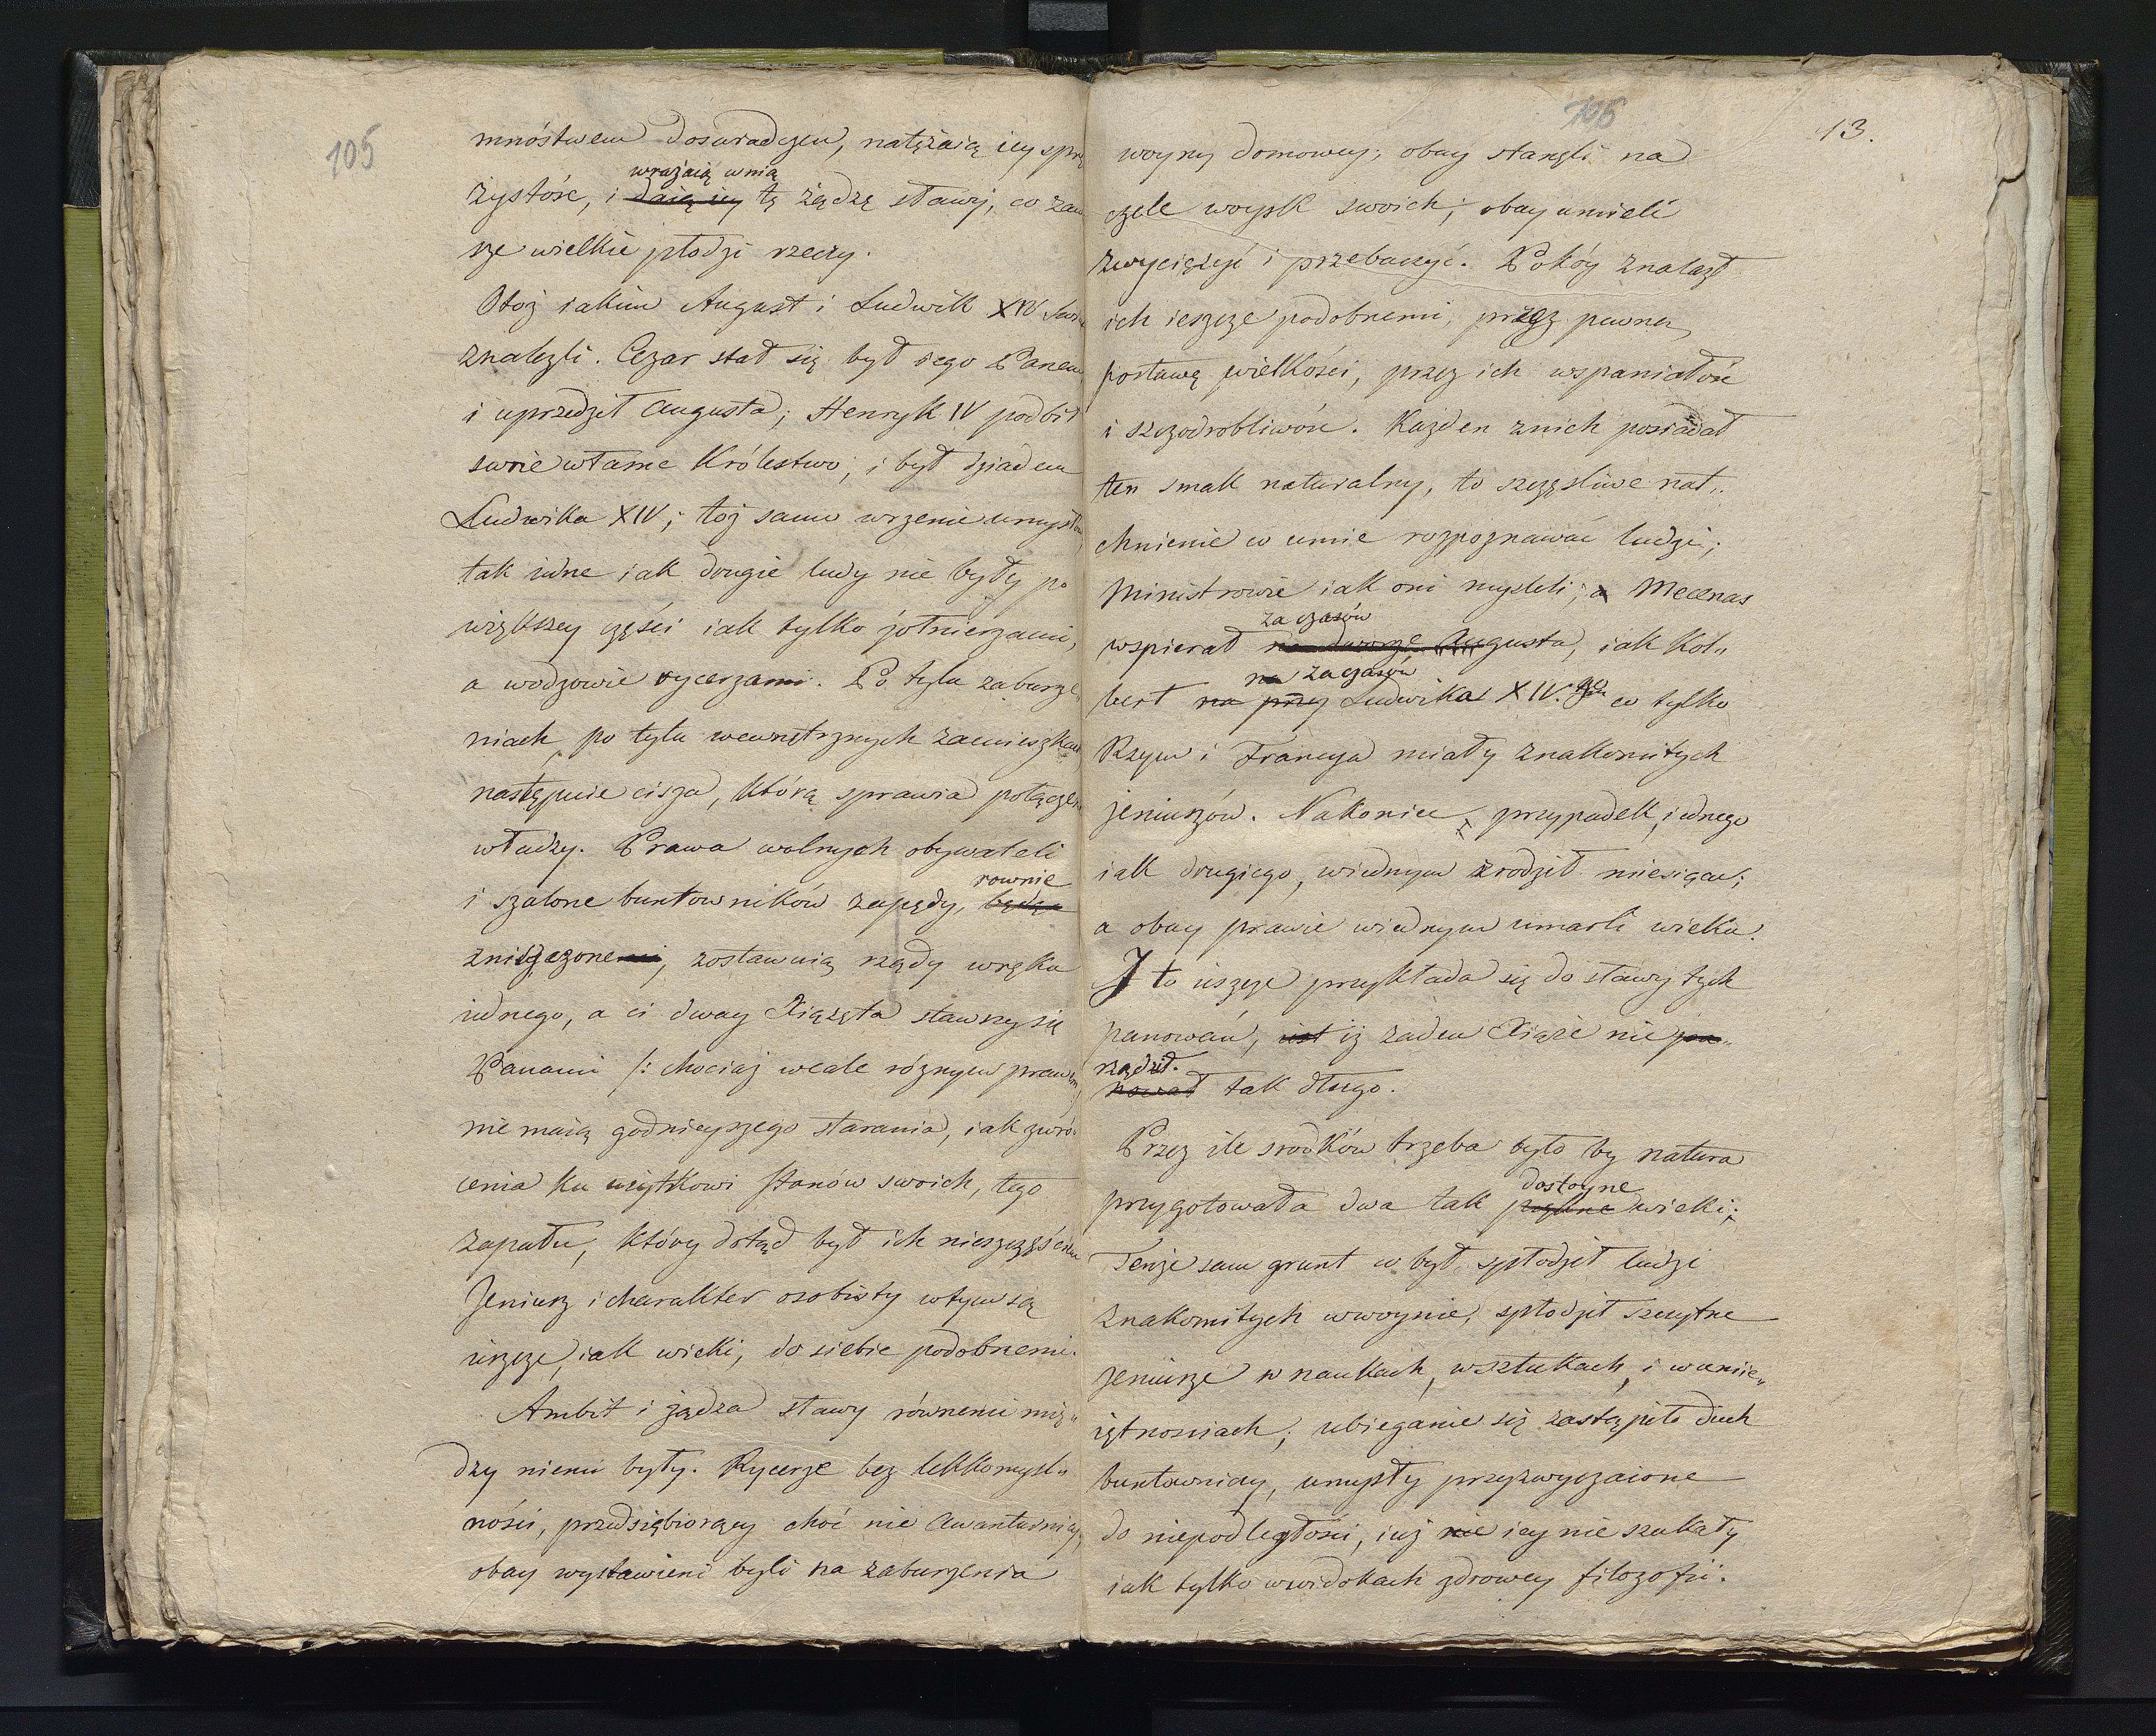 105
mnóstwem doswiadczeń, natężaią iey sprę
wrażaią wnią
żystóść, i daią iey tę żądzę sławy, co zaw
sze wielkie płodzi rzeczy.
Otóż iakim August i Ludwik XIV świa
znalezli. Cezar stał się był iego Panem
i uprzedził Augusta; Henryk IV podbił
swoie własne Królestwo, i był dziadem
Ludwika XIV; toż samo wrzenie umysłów
tak iedne iak drugie ludy nie były po
większey części iak tylko żołnierzami,
a wodzowie rycerzami. Po tylu zaburze„
niach, po tylu wewnętrznych zamieszkań
następuie cisza, którą sprawia połączen
władzy. Prawa wolnych obywateli
rownie
i szalone buntowników zapędy, będąc
zniszczonemi, zostawuią rządy wręku
iednego, a ci dway Xiążęta stawszy się
Panami /: chociaż wcale różnym prawem
nie maią godnieyszego starania, iak zwró„
cenia ku użytkowi stanów swoich, tego
zapału, który dotąd był ich nieszczęściem
Jeniusz i charakter osobisty wtym są
ieszcze, iak wieki, do siebie podobnemi.
Ambit i żądza sławy równemi mię„
dzy niemi były. Rycerze bez lekkomyśl„
ności, przedsiębiorący choć nie Awanturnicy,
obay wystawieni byli na zaburzenia
106
13.
woyny domowey; obay stanęli na
czele woysk swoich; obay umieli
zwyciężyć i przebaczyć. Pokóy znalazł
ich ieszcze podobnemi, przez pewną
postawę wielkości, przez ich wspaniałość
i szczodrobliwość. Każden znich posiadał
ten smak naturalny, to szczęśliwe nat„
chnienie co umie rozpoznawać ludzi;
Ministrowie iak oni mysleli; a Mecenas
za czasów
wspierał na dworze Augusta, iak Kol„
na za czasów
bert na przy Ludwika XIV.go co tylko
Rzym i Francya miały znakomitych
jeniuszów. Nakoniec przypadek, iednego
iak drugiego, wiednym zrodził miesiącu;
a obay prawie wiednym umarli wieku.
I to ieszcze przykłada się do sławy tych
panowań, iest iż żaden Xiąże nie pa„
rządził.
nował tak długo.
Przez ile srodków trzeba było by natura
dostoyne
przygotowała dwa tak piękne wieki;
Tenże sam grunt co był spłodził ludzi
znakomitych wwoynie, spłodził szczytne
jeniusze w naukach, w sztukach, i wumie„
iętnosciach; ubieganie się zastąpiło duch
buntowniczy, umysły przyzwyczaione
do niepodległości, iuż nie iey nie szukały
iak tylko wwidokach zdrowey filozofii.